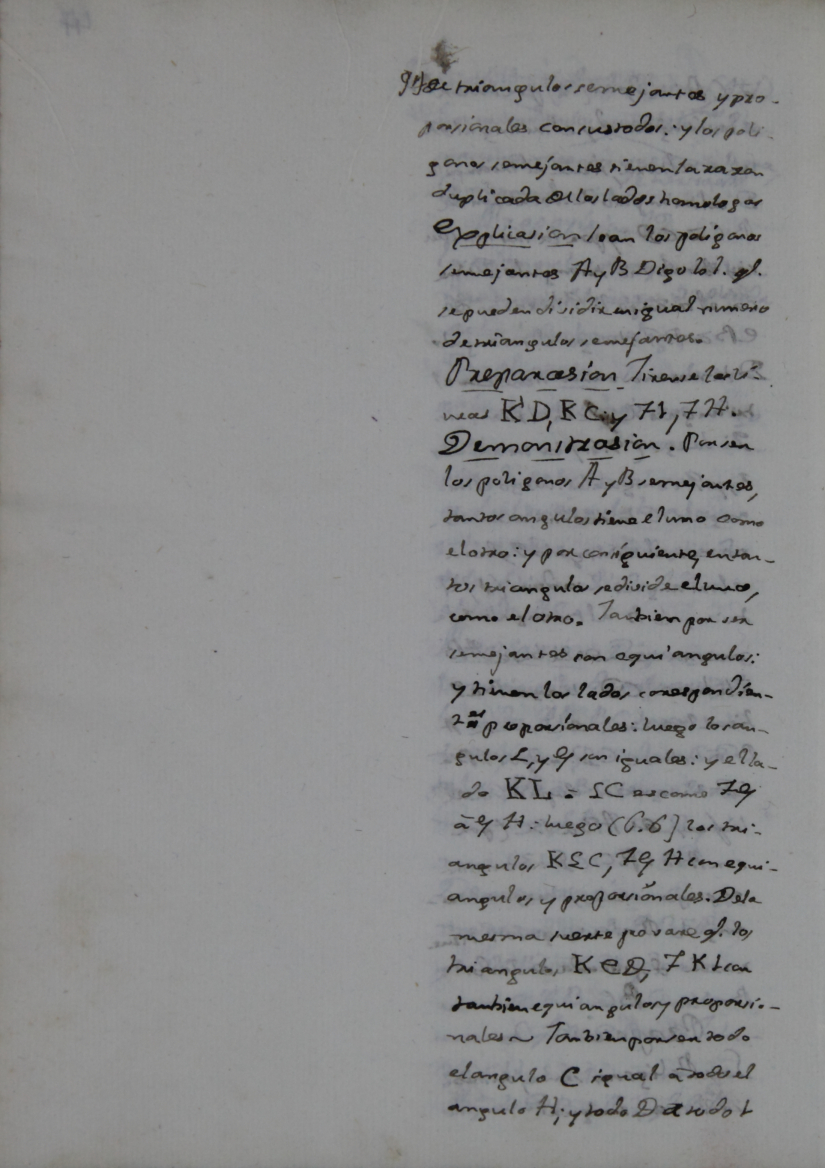 de triangulos semejantes y pro-
porsionales con sus todos: y los poli-
gonos semejantes tienen la raxon
duplicada de los lados homologos
Explicasion sean los poligonos
semejantes A y B Digo lo 1. q.
se pueden dividir en igual numero
de triangulos semejantes.
Preparasion Tirense las li-
neas KD, KC: y 7I, 7H.
Demonstrasion. Por ser
los poligonos A y B semejantes,
tantos angulos tiene el uno como
el otro: y por consiguiente, en tan-
tos triangulos se divide el uno,
como el otro. Tanbien por ser
semejantes son equiangulos:
y tienen los lados correspondien-
tes proporsionales: luego los an-
gulos L, y G son iguales: y el la-
do KL = LC es como 7G
à G H: luego (6.6) los tri-
angulos KLC, 7G H son equi-
angulos y proporsionales. De la
mesma suerte provare q. los
triangulos KCD, 7 H I son
tanbien equiangulos y proporsi-
nales ~ Tanbien por ser todo
el angulo C igual à todo el
angulo H, y todo D a todo I